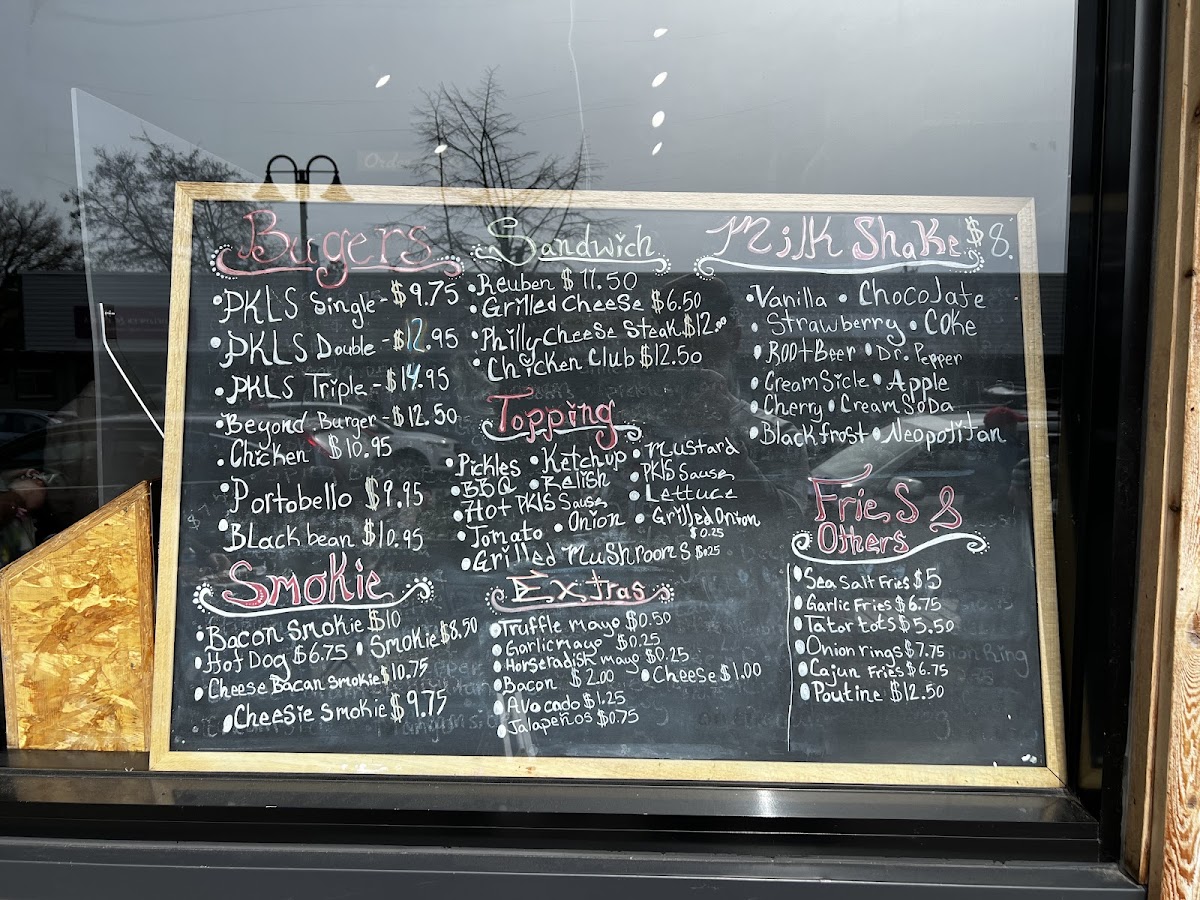 Bugers
• PKLS Single - $9.75
• PKLS Double - $12.95
• PKLS Triple - $14.95
• Beyond Burger - $12.50
• Chicken $10.95
• Portobello $9.95
• Black bean $10.95
Smokie
• Bacon Smokie $10
• Hot Dog $6.75 • Smokie $8.50
• Cheese Bacan Smokie $10.75
• Cheesie Smokie $9.75
Sandwich
• Reuben $11.50
• Grilled Cheese $6.50
• Philly Cheese Steak $12.00
• Chicken Club $12.50
Topping
• Pickles • Ketchup • Mustard
• BBQ • Relish • PKLS Sause
• Hot PKLS Sause • Lettuce
• Tomato • Onion • Grilled Onion $0.25
• Grilled Mushrooms $0.25
Extras
• Truffle mayo $0.50
• Garlic mayo $0.25
• Horseradish mayo $0.25
• Bacon $2.00 • Cheese $1.00
• Avocado $1.25
• Jalapeños $0.75
Milk Shake $8.
• Vanilla • Chocolate
• Strawberry • Coke
• Root Beer • Dr. Pepper
• Creamsicle • Apple
• Cherry • Cream Soda
• Blackfrost • Neopolitan
Fries &
Others
• Sea Salt Fries $5
• Garlic Fries $6.75
• Tator tots $5.50
• Onion rings $7.75
• Cajun Fries $6.75
• Poutine $12.50